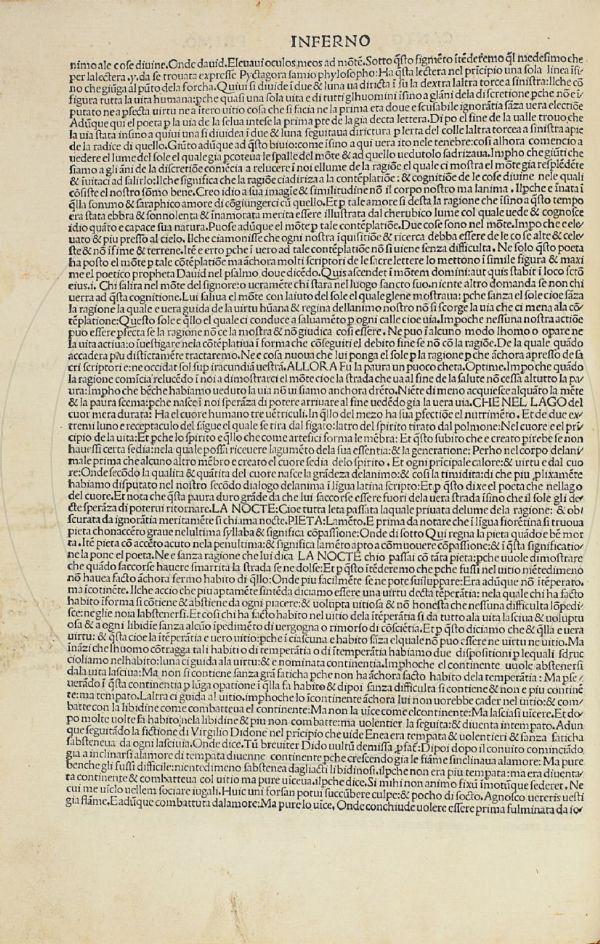 INFERNO
nimo ale cose diuine. Onde dauid. Eleuaui oculos meos ad mōtē. Sotto q̄sto figmēto ītēderemo q̄l medesimo che
per la lectera .y. da se trouata expresse Pyctagora samio phylosopho: Ha q̄sta lectera nel prīcipio una sola linea īsi/
no che giūga al pūto dela forcha. Quiui si diuide ī due & luna ua diricta ī su la dextra laltra torce a sinistra: Ilche cō
figura tutta la uita humana: pche quasi una sola uita e di tutti glhuomini īsino a glāni dela discretione pche nō e ī/
putato ne a pfecta uirtu ne a itero uitio cosa che si facia ne la prima eta doue e scusabile ignorātia sāza uera electiōe
Adūque qui el poeta p la uia de la selua intese la prima pte de la gia decta lettera. Di po el fine de la ualle trouo, che
la uia stata insino a quiui una si diuidea ī due & luna seguitaua diricta p lerta del colle laltra torcea a sinistra apie
de la radice di quello. Giūto adūque ad q̄sto biuio: come īsino a qui uera ito nele tenebre: cosi alhora comencio a
uedere el lume del sole el quale gia pcoteua le spalle del mōte & ad quello uedutolo sadrizaua. Impho che giūti che
siamo a gli āni de la discretiōe comēcia a relucere ī noi el lume de la ragiōe el quale ci mostra el mōte gia resplēdēte
& īuitaci ad salirlo: Ilche significa che la ragiōe ciadiriza la contēplatiōe: & cognitiōe de le cose diuine nele quali
cōsiste el nostro sōmo bene. Creo idio a sua imagīe & similitudine nō il corpo nostro ma lanima. Ilpche e īnata ī
q̄lla sommo & saraphico amore di cōgiūgerci cū quello. Et p tale amore si desta la ragione che īsino a q̄sto tempo
era stata ebbra & sonnolenta & inamorata merita essere illustrata dal cherubico lume col quale uede & cognosce
idio quāto e capace sua natura. Puose adūque el mōte p tale contēplatiōe. Due cose sono nel mōte. Impo che e ele/
uato & piu presso al cielo. Ilche ciamonisse che ogni nostra īquisitiōe & ricerca debba essere de le cose alte & cele/
ste & nō īfime & terrene. Ité e erto pche ī uero ad tale contēplatiōe nō si uiene senza difficulta. Ne solo q̄sto poeta
ha posto el mōte p tale cōtēplatiōe ma āchora molti scriptori de le sacre lettere lo mettono ī simile figura & maxi
me el poetico propheta Dauid nel psalmo doue dicēdo. Quis ascendet ī mōtem domini: aut quis stabit ī loco scto
eius. i. Chi salira nel mōte del signore: o ueramēte chi stara nel luogo sancto suo. niente altro domanda se non chi
uerra ad q̄sta cognitione. Lui saliua el mōte con laiuto del sole el quale glene mostraua: pche sanza el sole cioe sāza
la ragione la quale e uera guida de la uirtu hūana & regina dellanimo nostro nō si scorge la uia che ci mena ala cō
tēplatione: Questo sole e q̄llo el quale ci conduce a saluamēto p ogni calle cioe uia. Impoche nessuna nostra actiōe
puo essere pfecta se la ragione nō ce la mostra & nō giudica cosi essere. Ne puo ī alcuno modo lhomo o opare ne
la uita actiua: o īuestigare nela cōtēplatiua ī forma che cōseguiti el debito fine se nō cō la ragiōe. De la quale quādo
accadera piu distictamēte tractaremo. Ne e cosa nuoua che lui ponga el sole p la ragione p che āchora apresso de sa
cri scriptori e: ne occidat sol sup iracundiā uestrā. ALLORA Fu la paura un puoco cheta. Optime. Impo che quādo
la ragiōe comīcia relucēdo ī noi a dimostrarci el mōte cioe la strada che ua al fine de la salute nō essa al tutto la pa/
ura: Impho che bēche habiamo ueduto la uia nō ui siamo anchora drēto. Niēte di meno acquiesce alquāto la mēte
& la paura scema: pche nasce ī noi sperāza di potere arriuare al fine uedēdo gia la uera uia. CHE NEL LAGO del
cuor mera durata: Ha el cuore humano tre uētriculi. In q̄llo del mezo ha sua pfectiōe el nutrimēto. Et de due ex
tremi luno e receptaculo del sāgue el quale se tira dal figato: latro del spirito tirato dal polmone: Nel cuore e el pri/
cipio de la uita: Et pche lo spirito e q̄llo che come artefici forma le mēbra: Et q̄sto subito che e creato pirebe se non
hauessi certa sedia: nela quale possa riceuere lagumēto dela sua essentia: & la generatione: Perho nel corpo delani/
male prima che alcuno altro mēbro e creato el cuore sedia delo spirito. Et ogni pricipale calore: & uirtu e dal cuo/
re: Onde secōdo la qualita & quātita del cuore nasce la grādeza delanimo: & cosi la timidita: di che piu plixamēte
habiamo disputato nel nostro secōdo dialogo delanima ī līgua latina scripto: Et p q̄sto dixe el poeta che nel lago
del cuore. Et nota che q̄sta paura duro grāde da che lui saccorse essere fuori dela uera strada īsino che il sole gli de/
cte sperāza di poterui ritornare. LA NOCTE: Cioe tutta leta passata la quale priuata delume dela ragione: & ob/
scurata da ignorātia meritamēte si chiama nocte. PIETA: Lamēto. E prima da notare che ī līgua fiorētīna si truoua
pieta chonaccēto graue nel ultima syllaba & significa cōpassione: Onde di sotto Qui regna la pieta quādo be mor
ta. Ité pieta cō accēto acuto nela penultima: & significa lamēto apto a cōmouere cōpassiōe: & ī q̄sta significatio/
ne la pone el poeta. Ne e sanza ragione che lui dica LA NOCTE chio passai cō tāta pieta: pche uuole dimostrare
che quādo saccorse hauere smarrita la strada se ne dolse: Et p q̄sto ītēderemo che pche fussi nel uitio niētedimeno
nō hauea facto āchora fermo habito di q̄llo: Onde piu facilmēte se ne pote suiluppare: Era adūque nō ītēperato,
ma īcotinēte. Ilche accio che piu aptamēte sintēda diciamo essere una uirtu decta tēperātia: nela quale chi ha facto
habito iforma si cōtiene & abstiene da ogni piacere: & uolupta uitiosa & nō honesta che nessuna difficulta lōpedi/
sce: ne glie noia labstenersi. Et cosi chi ha facto habito nel uitio dela ītēperātia si da tutto ala uita lasciua & uolupt/
uosa & a ogni libidīe sanza alcūo īpedimēto di uergogna o rimorso di cōsciētia. Et p q̄sto diciamo che & q̄lla e uera
uirtu: & q̄sta cioe la itēperātia e uero uitio: pche ī ciascuna e habito sāza el quale nō puo essere ne uirtu ne uitio. Ma
īnāzi che lhuomo cōtragga tali habiti o di temperātia o di ītemperātia habiamo due dispositioni p lequali sdruc
cioliamo nelhabito: luna ci guida ala uirtu: & e nominata continentia. Imphoche el continente uuole abstenersi
dala uita lasciua: Ma non si contiene sanza grā faticha pche non ha āchora facto habito dela temperātia: Ma pse/
uerādo ī q̄sta continentia p lūga opatione ī q̄lla fa habito & dipoi sanza difficulta si contiene & non e piu continē
te: ma temperato. Laltra ci guida al uitio. imphoche lo īcontinente āchora lui non uorebbe cader nel uitio: & com/
batte con la libidine come combatteua el continente: Ma non la uice come el continente: Ma lascia si uicere. Et do/
po molte uolte fa habito nela libidine & piu non combatte: ma uolentier la seguita: & diuenta intempato. Adun/
que seguitādo la fictione di Virgilio Didone nel pricipio che uide Enea era tempata & uolentieri & sanza faticha
sabsteneua da ogni lasciuia. Onde dice. Tū breuiter Dido uultū demissa pfat: Dipoi dopo il conuito cominciādo
gia a inclinarsi alamore di temptata diuenne continente pche crescendo gia le fiāme sinclinaua alamore: Ma pure
benche gli fussi difficile: nientedimeno sabstenea dagliacti libidinosi. ilpche non era piu tempata: ma era diuenta/
ta continente & combatteua col uitio ma pure uiceua. ilpche dice. Si mihi non animo fixū imotūque sederet. Ne
cui me uīclo uellem sociare iugali. Huic uni forsan potui succūbere culpe: & pocho di socto. Agnosco ueteris uesti
gia flāme. E adūque combattuta dalamore: Ma pure lo uice, Onde conchiude uolere essere prima fulminata da io/